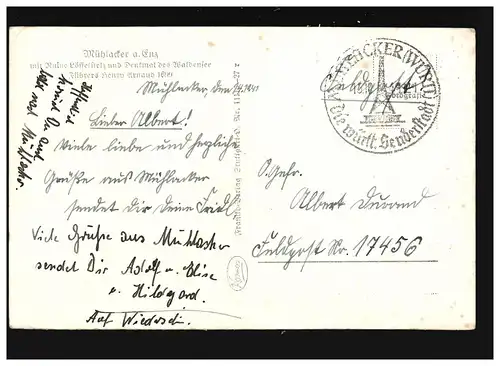 Mühlacker a. Enz
mit Ruine Löffelstelz und Denkmal des Waldenser
Führers Henry Arnaud
Mühlacker, den
Lieber Albert!
Viele liebe und herzliche
Grüße aus Mühlacker
sendet Dir Deine Friedl
Viele Grüße aus Mühlacker
sendet Dir Adolf u. Elise
u. Hildegard.
Auf Wiedersehn
Hoffentlich
kommst Du auch
nach Mühlacker.
MÜHLACKER (WÜRTT)
Die württ. Senderstadt
Feldpost
S. Gefr.
Albert Durand
Feldpost Nr. 17456